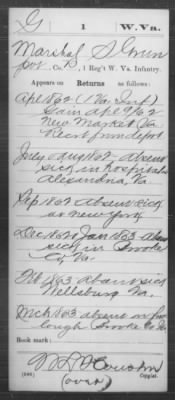 G 1 W. Va.
Marshal S Grim
pvt. Co. B, 1 Reg't W. Va. Infantry.
Appears on Returns as follows:
Apl 1862 (1 Va. Inf.)
Gain Apl 9/62
New Market Va
Recruit from depot
July & Aug 1862 absent
sick in hospital
Alexandria, Va
Sep 1862 Absent sick
at New York
Dec 1862 Jan 1863 Absent
sick in Brooke
Co, Va.
Feb 1863 absent sick
Wellsburg Va.
Mch 1863 absent on fur
lough Brooke Co Va
Book mark:
(546) (over) Copyist.